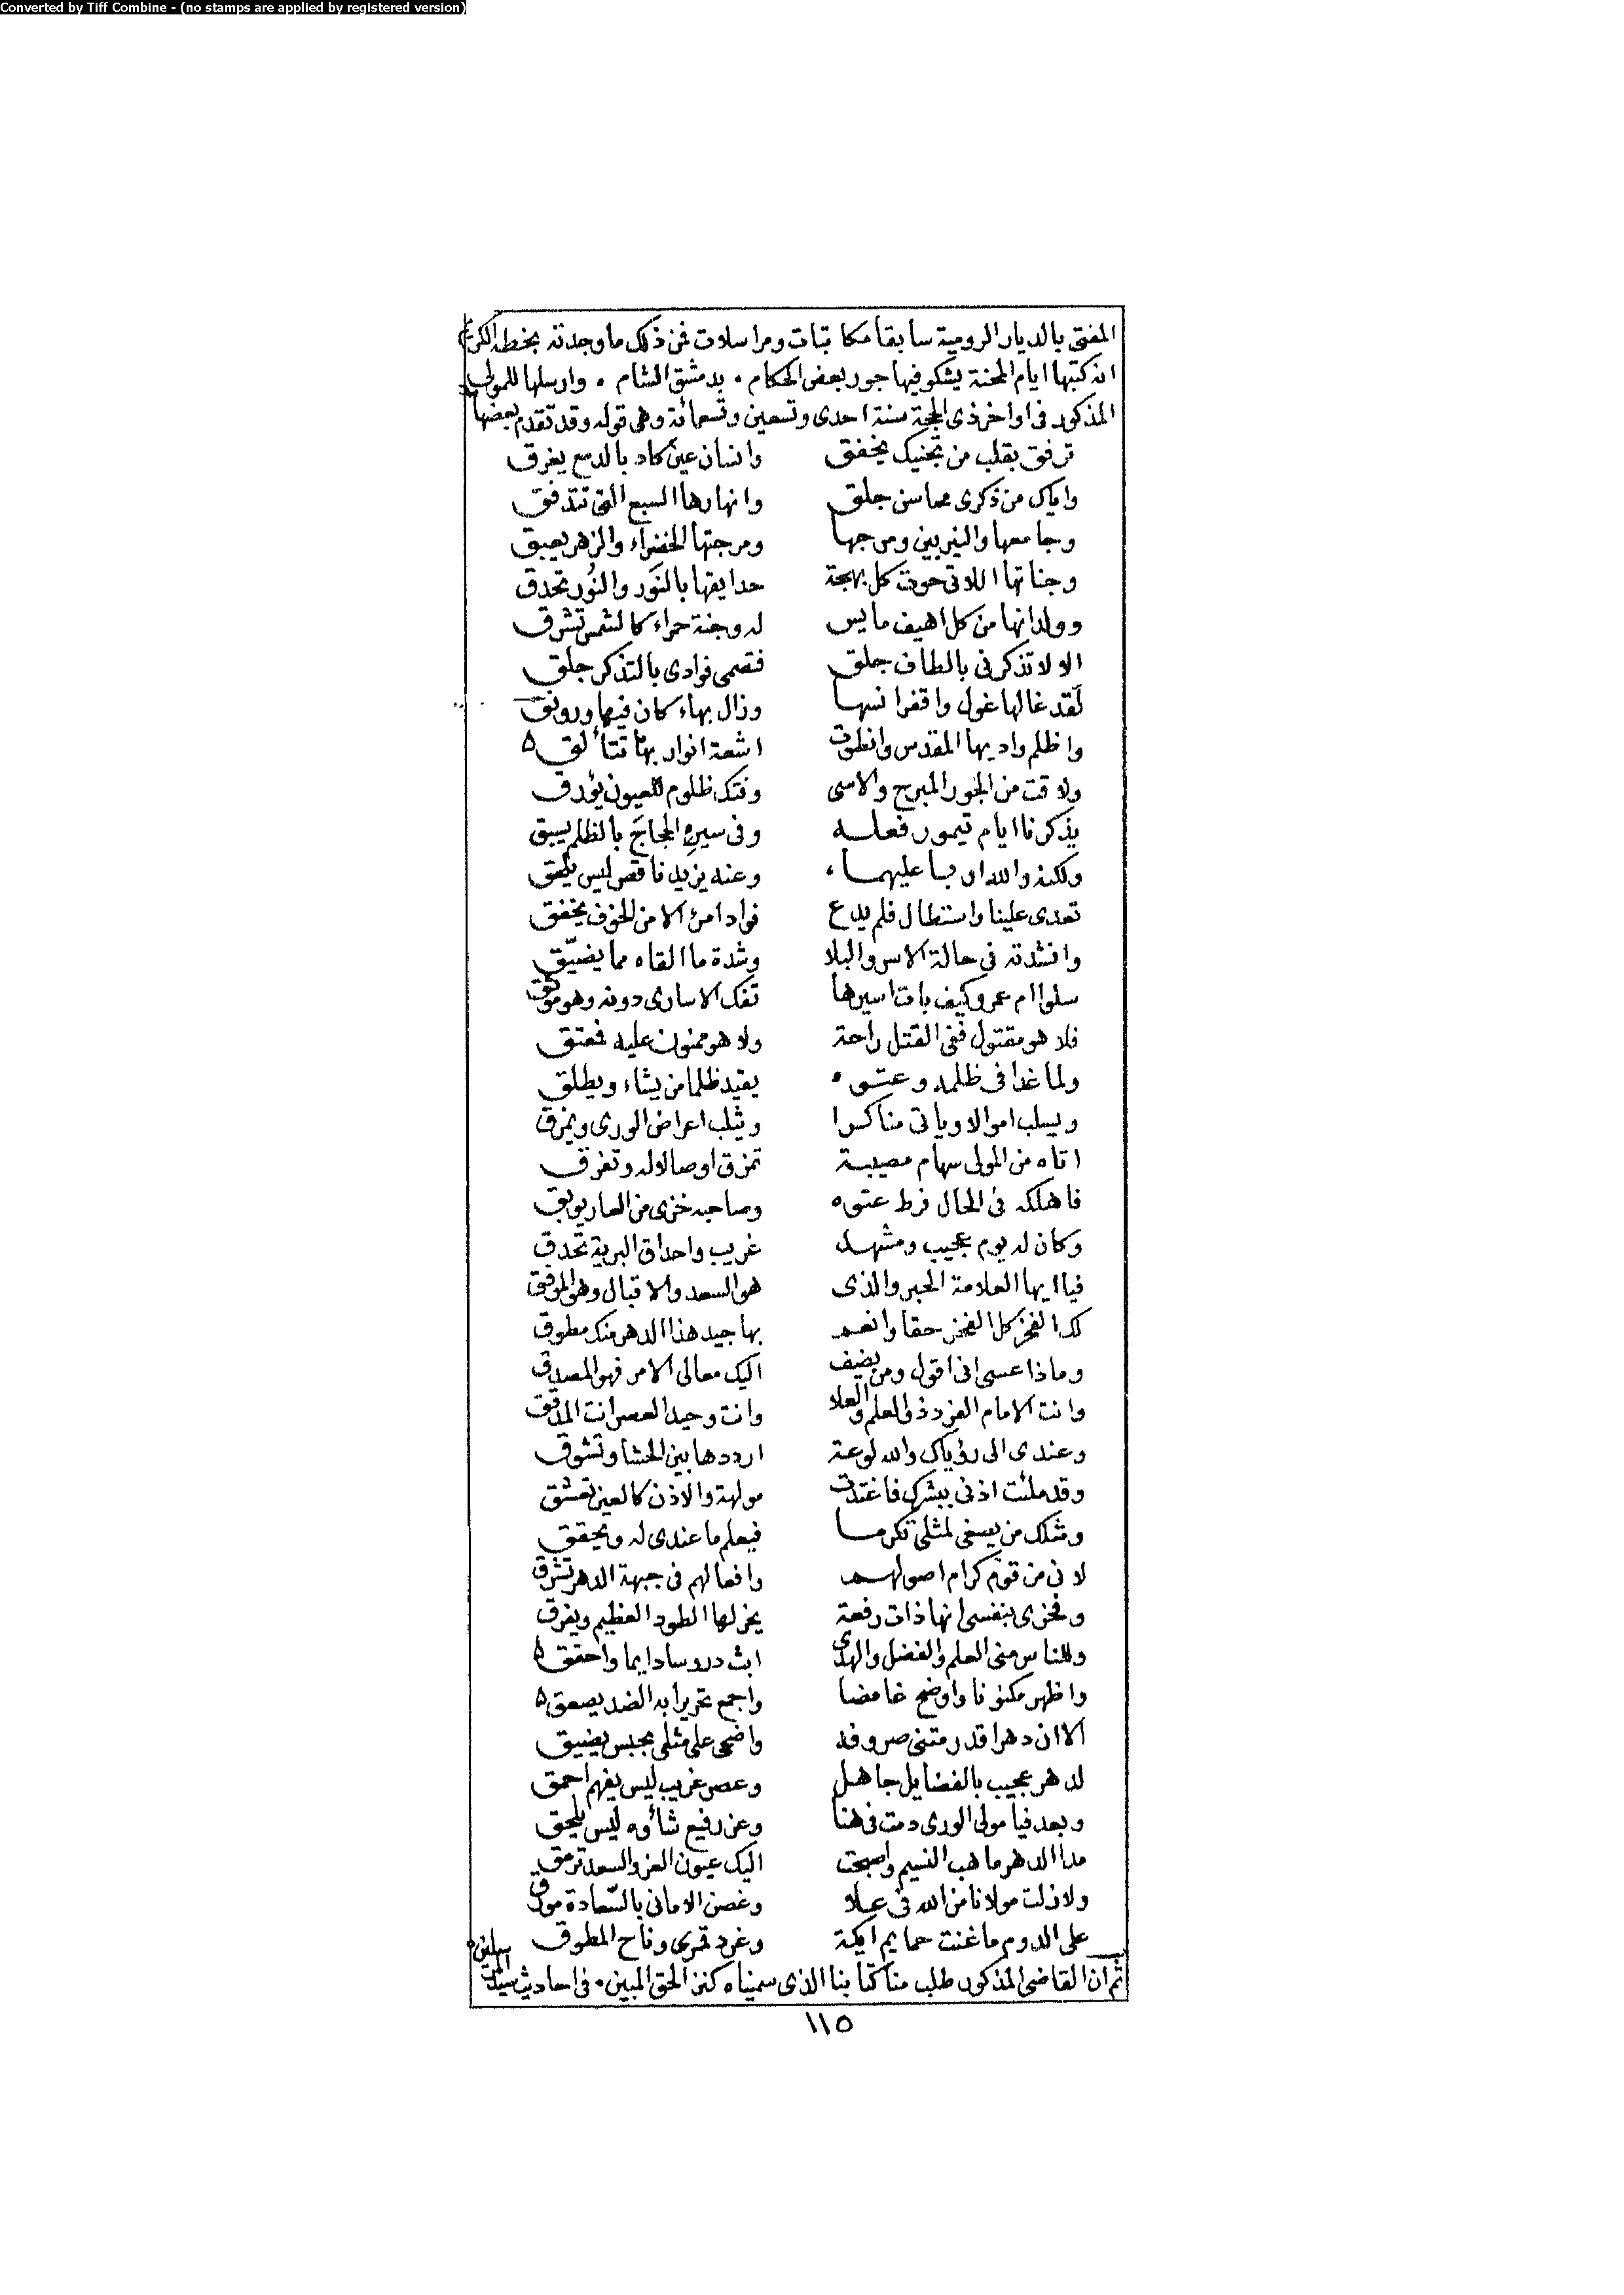 Converted by Tiff Combine - (no stamps are applied by registered version)
المفتى بالديار الرومية سابقا مكاتبات ومراسلات فمن ذلك ما وجدته بخطه الكريم
انه كتبها ايام المحنة يشكو فيها جور بعض الحكام . بدمشق الشام . وارسلها للمولى
المذكور فى اواخر ذى الحجة سنة احدى وتسعين وتسعمائة وهى قوله وقد تقدم بعضها
ترفق بقلب من تجنيك يخفق وانسان عين كاد بالدمع يغرق
واياك من ذكرى محاسن جلق وانهارها السبع التى تتدفق
وجامعها والنيربين ومرجها ومرجتها الخضراء والزهر يعبق
وجناتها اللاتى حوت كل بهجة حدايقها بالنَور والنُور تحدق
وولدانها من كل اهيف مايس له وجنة حمراء كالشمس تشرق
الا لا تذكرنى بالطاف جلق فقصمى فوادى بالتذكر جلق
لقد غالها غول واقفر انسها وزال بهاء كان فيها ورونق
واظلم واديها المقدس وانطوت اشعة انوار بها تتألق
ولاقت من الجور المبرح والاسى وفتك ظلوم للعيون يؤرق
يذكرنا ايام تيمور فعله وفى سيره الحجاجَ بالظلم يسبق
ولكنه والله اربا عليهما وعنه يزيد ناقص ليس يلحق
تعدى علينا واستطال فلم يدع فواد امرئ الا من الخوف يخفق
وانشدته فى حالة الاسر والبلا وشدة ما القاه مما يضيّق
سلوا ام عمرو كيف بات اسيرها تفك الاسارى دونه وهو موثق
فلا هو مقتول ففى القتل راحة ولا هو ممنون عليه فعتق
ولما غدا فى ظلمه وعتوه يقيد ظلما من يشاء ويطلق
ويسلب اموالا وياتى مناكرا ويثلب اعراض الورى ويمزق
اتاه من المولى سهام مصيبة تمزق اوصالا له وتفرق
فاهلكه فى الحال فرط عتوه وصاحبه خزى من العار يوبق
وكان له يوم عجيب ومشهد غريب واحداق البرية تحدق
فيا ايها العلامة الحبر والذى هو السعد والاقبال وهو الموفق
لك الفخر كل الفخر حقا وانعم بها جيد هذا الدهر منك مطوق
وماذا عسى انى اقول ومن يضيف اليك معالى الامر فهو المصدق
وانت الامام الفرد ذو العلم والعلا وانت وحيد العصر انت المدقق
وعندى الى رؤياك والله لوعة ارددها بين الحشا وتشوق
وقد ملئت اذنى ببشرك فاغتدت مولهة والاذن كالعين تعشق
ومثلك من يصغى لمثلى تكرما فيعلم ما عندى له ويحقق
لانى من قوم كرام اصولهم وافعالهم فى جبهة الدهر تشرق
وفخرى بنفسى انها ذات رفعة يخر لها الطود العظيم ويفرق
وللناس منى العلم والفضل والهدى ابث دروسا دايما واحقق
واظهر مكنونا واوضح غامضا واجمع تحريرا به الضد يصعق
الا ان دهرا قد رمتنى صروفه واضحى على مثلى بحبس يضيق
لدهر عجيب بالفضايل جاهل وعصر غريب ليس يفهم احمق
وبعد فيا مولى الورى دمت فى هنا وعز رفيع شأوه ليس يلحق
مدا الدهر ما هب النسيم واصبحت اليك عيون العز والسعد ترمق
ولا زلت مولانا من الله فى علا وغصن الامانى بالسّعادة مورق
على الدوم ما غنت حمايم ايكة وغرد قمرى وناح المطوق
ثم ان القاضى المذكور طلب منا كتابنا الذى سميناه كنز الحق المبين . فى احاديث سيد المرسلين
١١٥